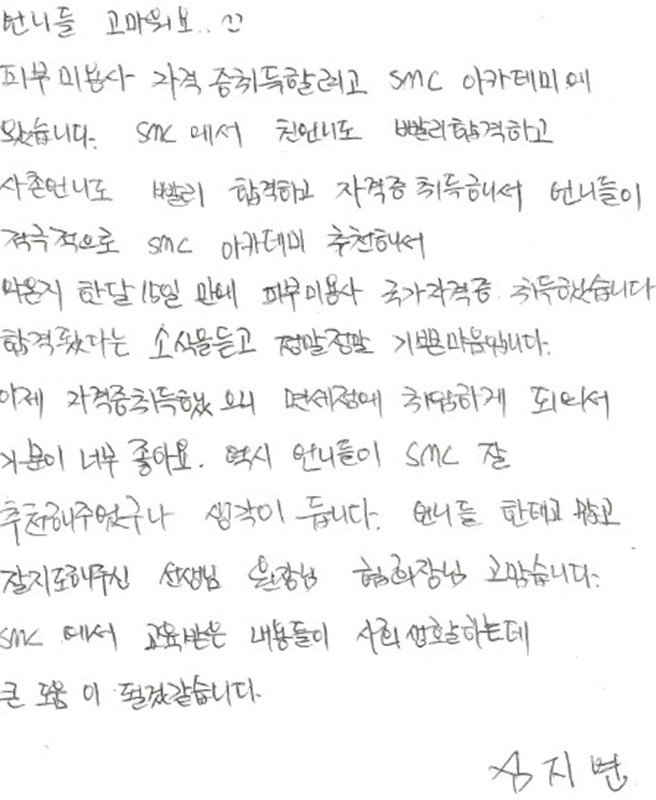 언니들 고마워요..
피부미용사 자격 증취득할려고 SMC 아카데미에
왔습니다. SMC 에서 친언니도 빨리합격하고
사촌언니도 빨리 합격하고 자격증 취득해서 언니들이
적극적으로 SMC 아카데미 추천해서
한달 15일 만에 피부미용사 국가자격증 취득했습니다
합격됐다는 소식을듣고 정말정말 기쁜마음입니다.
이제 자격증취득했 으니 면세점에 취업하게 되어서
기분이 너무 좋아요. 역시 언니들이 SMC 잘
추천해주었구나 생각이 듭니다. 언니들 한테고 맙고
잘지도해주신 선생님 원장님 협회장님 고맙습니다.
SMC 에서 교육받은 내용들이 사회생활하는데
큰 도움 이 될것같습니다.
심지변